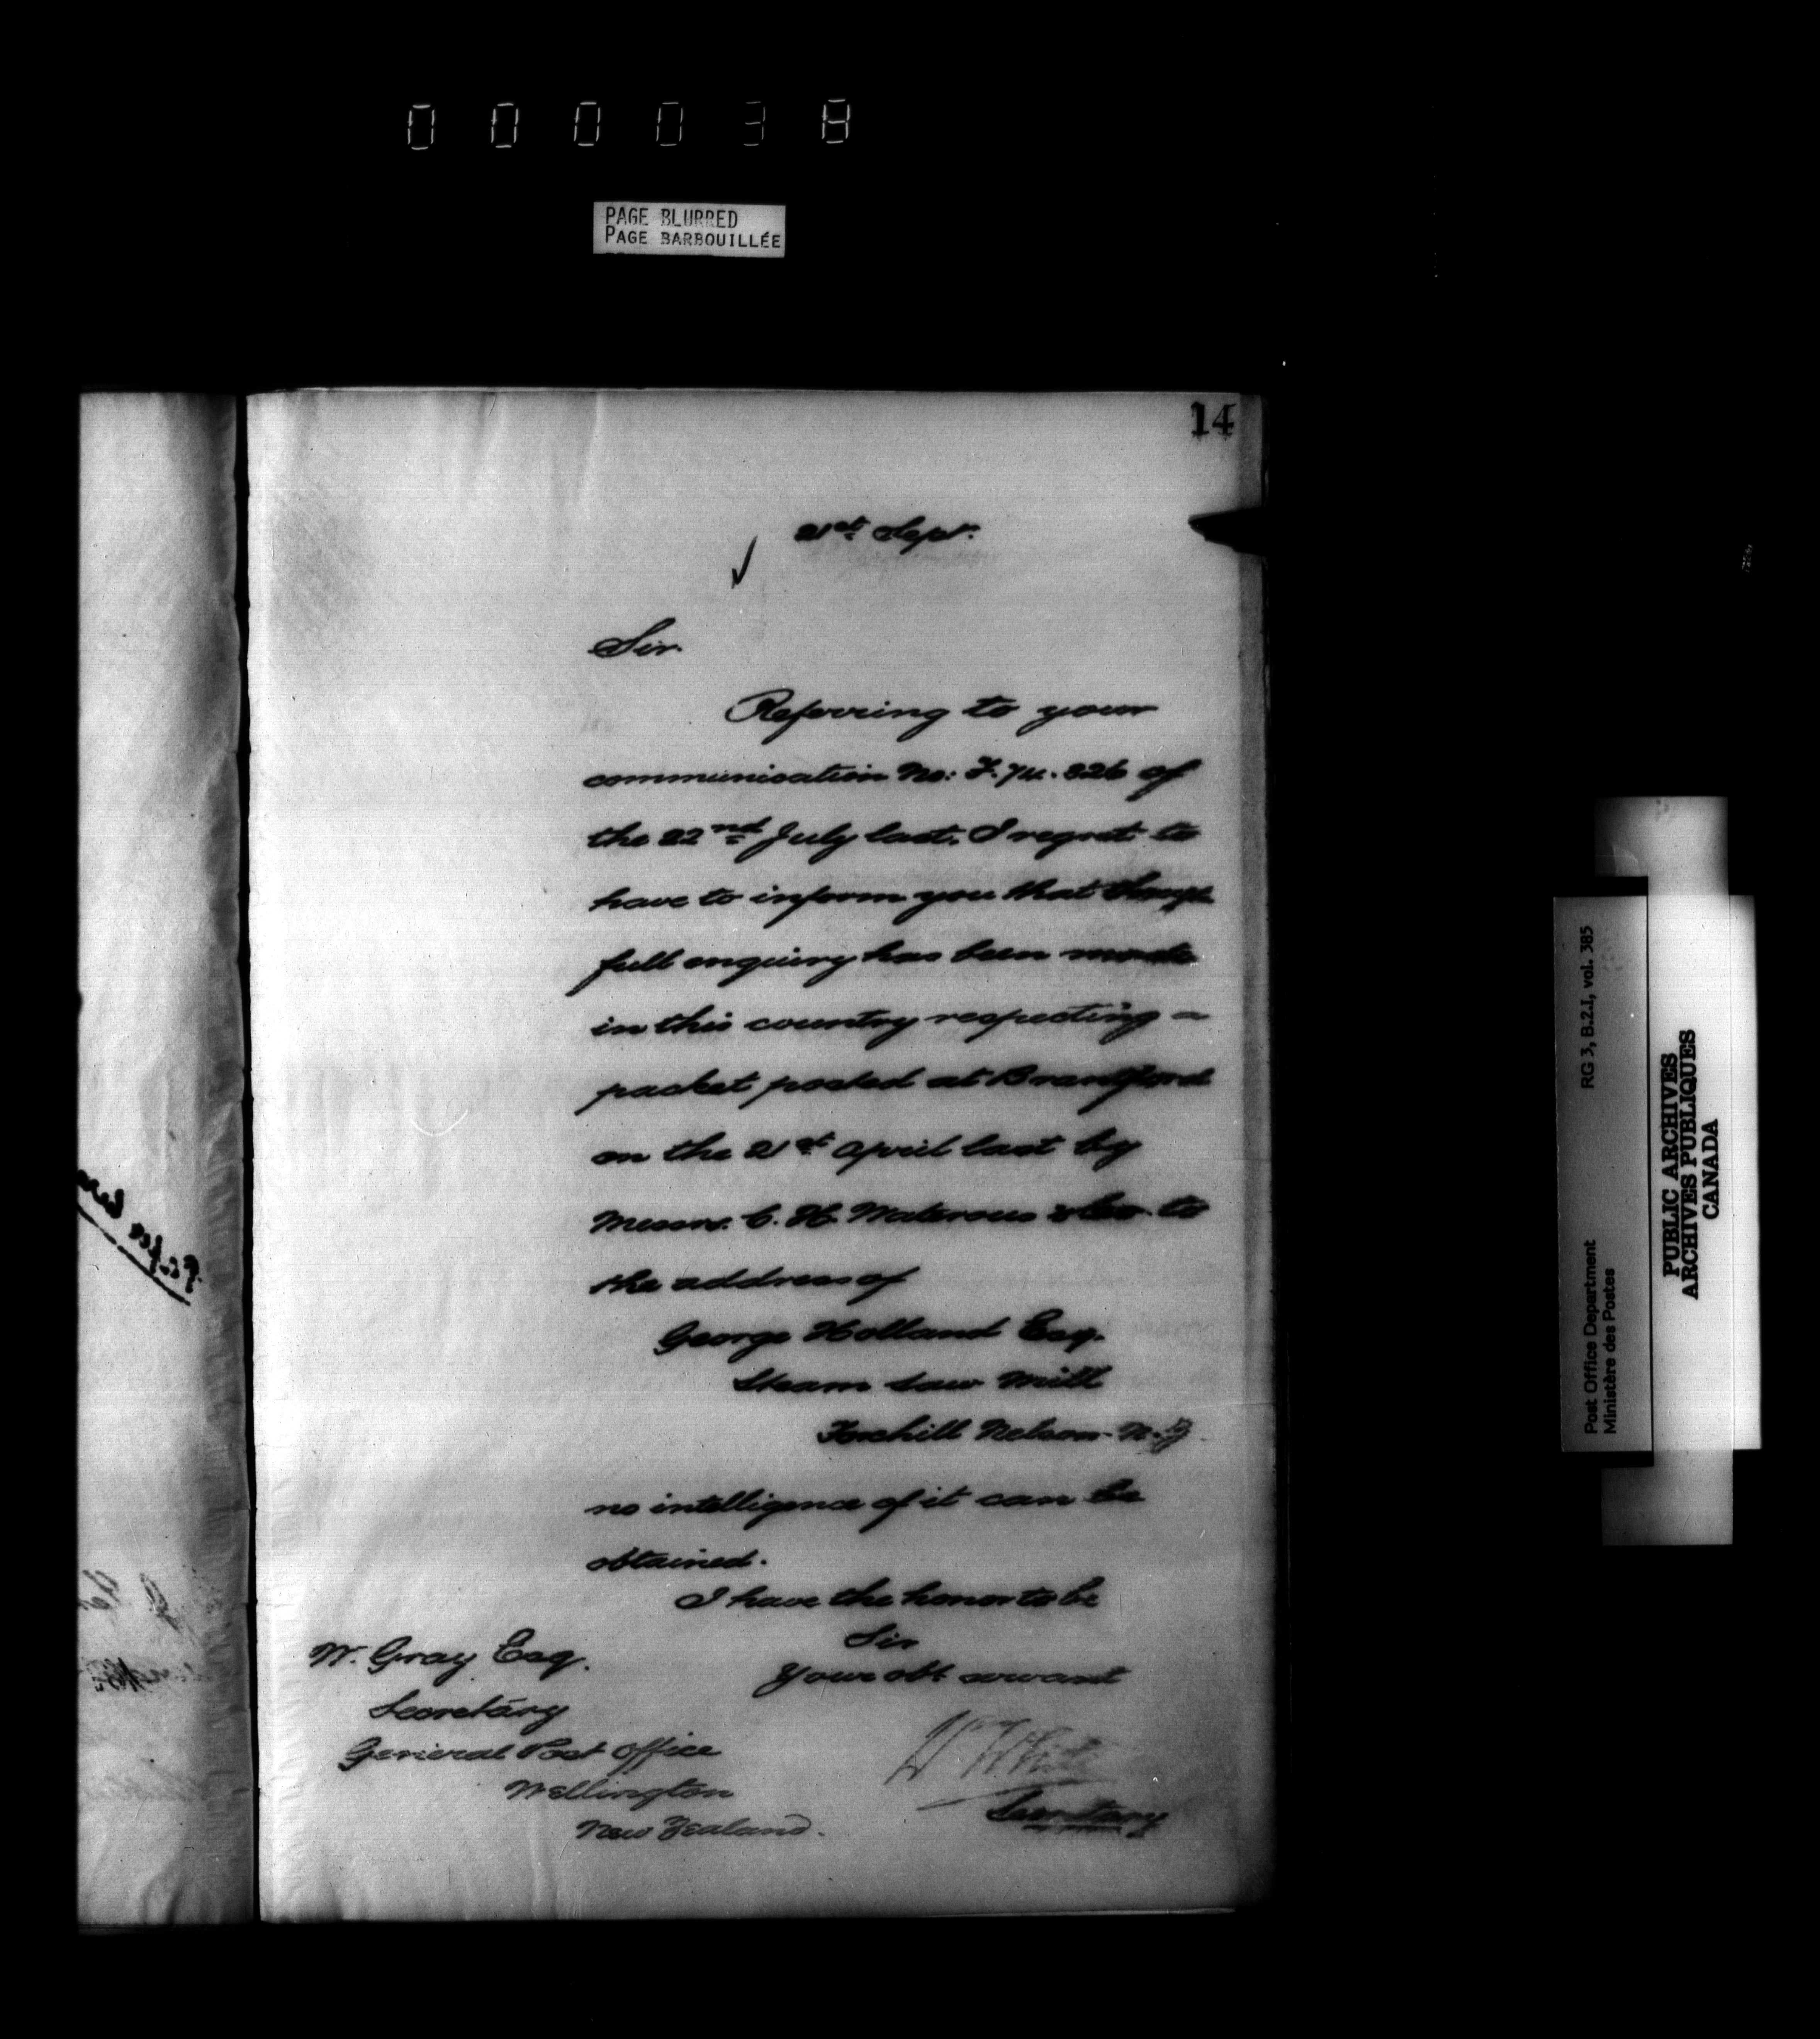 000038
PAGE BLURRED
PAGE BARBOUILLÉE
14
21st Sept.
Sir.
Referring to your
communication No: F. 74. 326 of
the 22nd July last, I regret to
have to inform you that though
full enquiry has been made
in this country respecting a
packet posted at Brantford
on the 21st April last by
Messrs. C. H. Waterous & Co. to
the address of
George Holland Esq.
Steam Saw Mill
Foxhill Nelson N.Z.
no intelligence of it can be
obtained.
I have the honor to be
Sir
Your obt servant
W White
Secretary
W. Gray Esq.
Secretary
General Post Office
Wellington
New Zealand.
Post Office Department RG 3, B.2.I, vol. 385
Ministère des Postes
PUBLIC ARCHIVES
ARCHIVES PUBLIQUES
CANADA